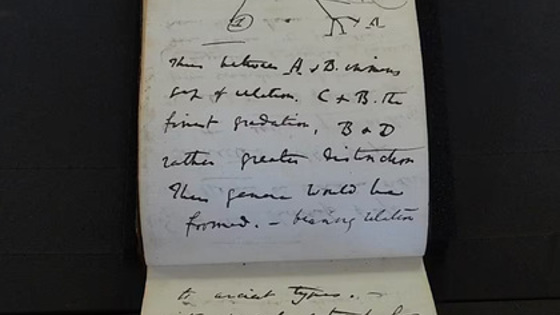 A
Thus between A & B. immens
gap of relation. C & B. the
finest gradation, B & D
rather greater distinction
Thus genera would be
formed. — bearing relation
to ancient types. —